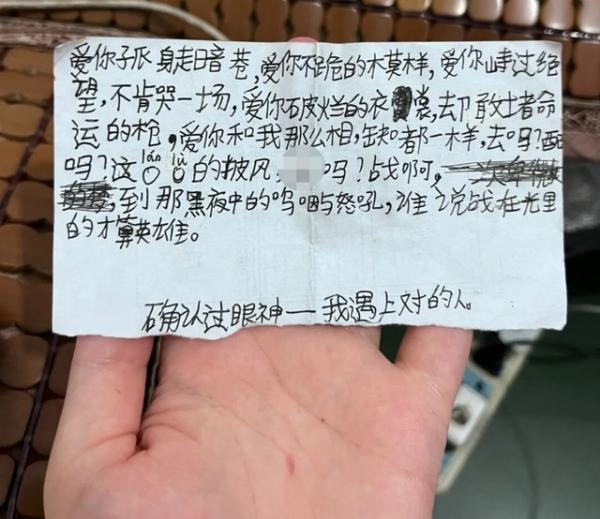 爱你孑孓身走日音巷,爱你不跪的木莫样,爱你峙过绝
望,不肯哭一场,爱你石皮烂的衣裳,去卩敢土者命
运的枪,爱你和我那么相,缺知都一样,去吗?配
吗?这 lán lǚ 的披风,吗?战啊,
到那黑夜中的呜咽与怒吼,谁说战在光里
的才算英雄。
确认过眼神——我遇上对的人。